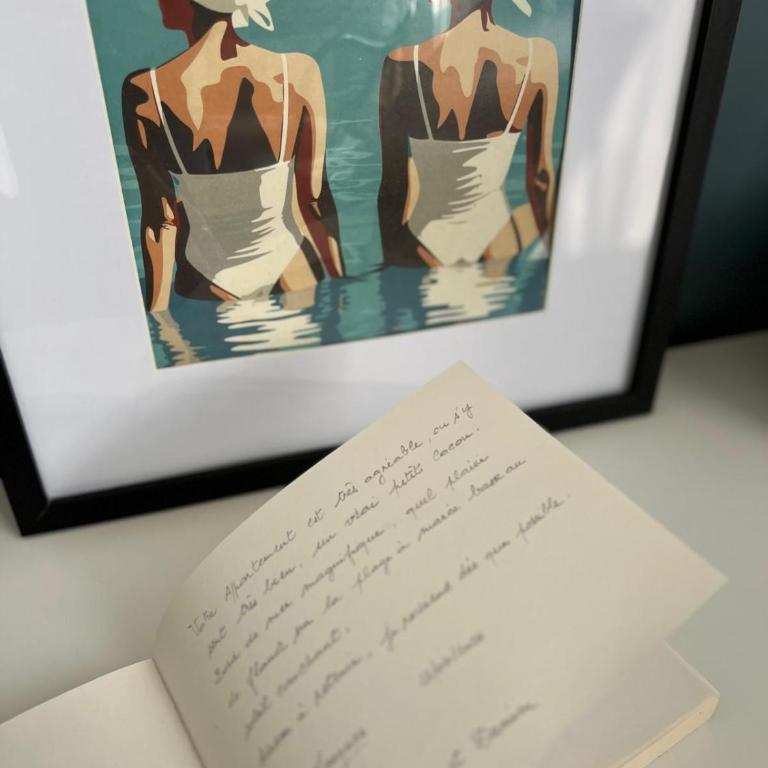 Votre Appartement est très agréable, on s'y
sent très bien, un vrai petit cocon.
Vue de mer magnifique, quel plaisir
de flaner sur la plage à marée basse au
soleil couchant.
à retenir, je reviens dès que possible.